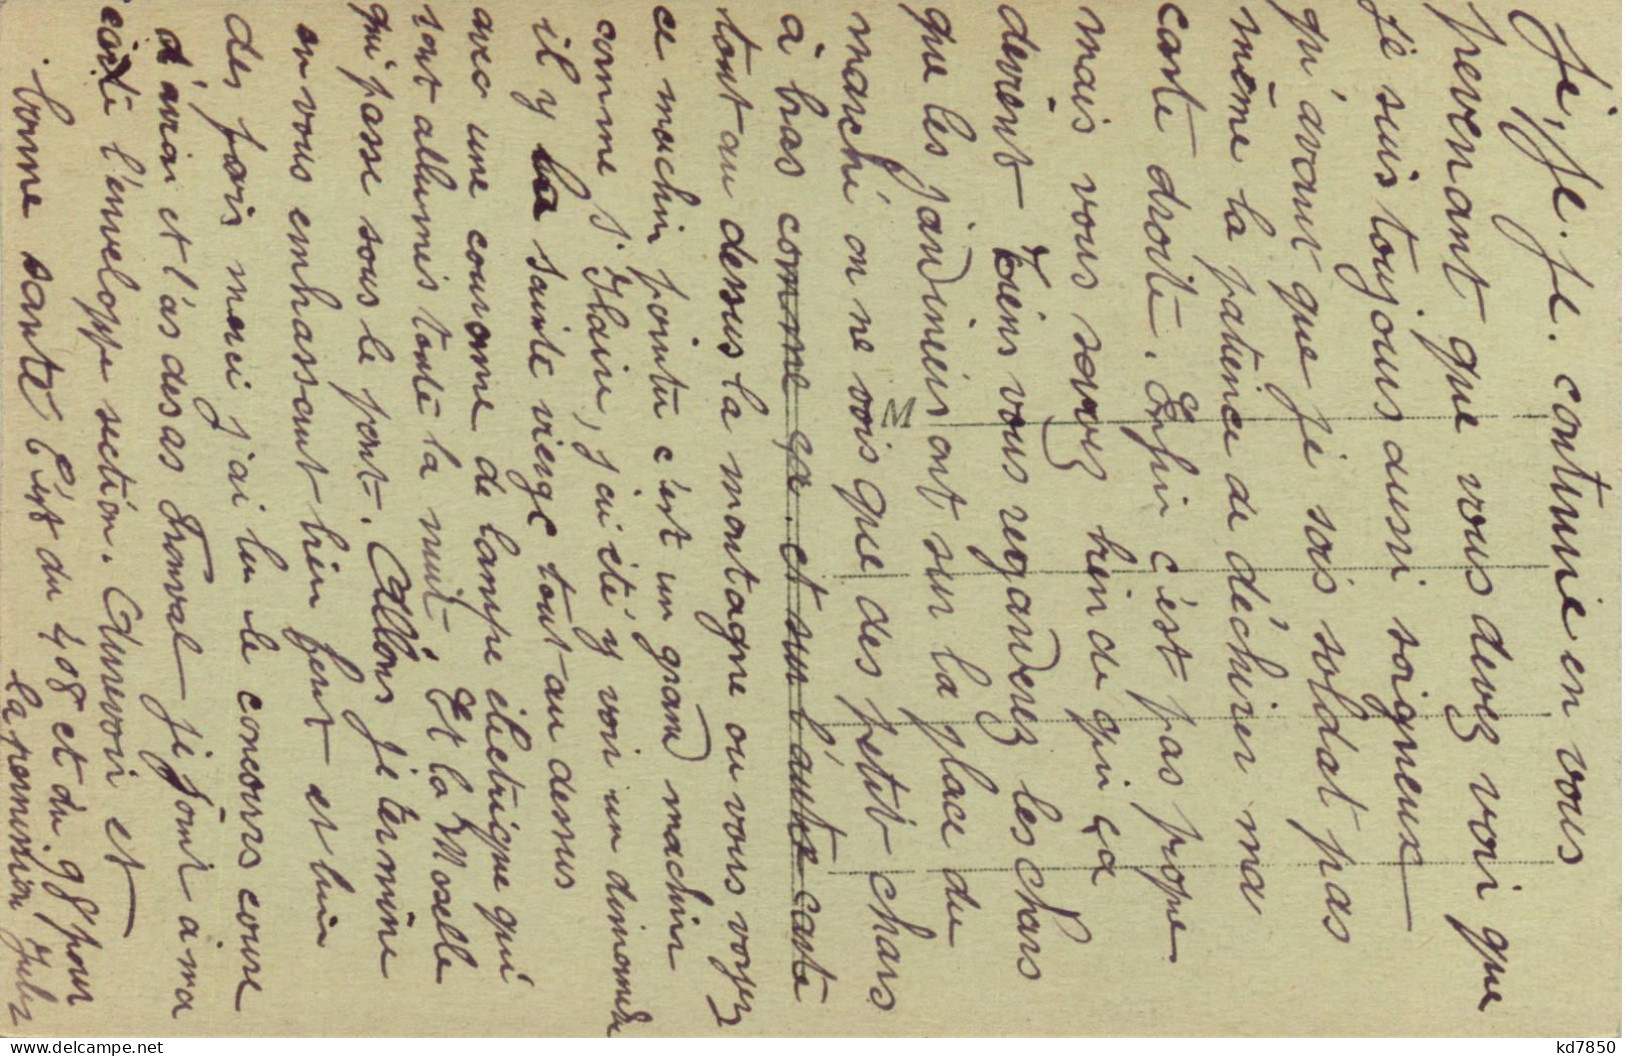 Je, Je. Je. continue en vous
prevenant que vous devez voir que
je suis toujours aussi soigneux
qu'avant que je sois soldat pas
même la patience de déchirer ma
carte droite. Enfin c'est pas propre
mais vous savez bien de qui ça
devient Tiens vous regarderez les chars
que les jardiniers ont sur la place du
marché on ne vois que des petit chars
à bras comme ça. et sur l'autre carte
tout au dessus la montagne ou vous voyez
ce machin pointu c'est un grand machin
comme s. Ylaire, j'ai été y voir un dimanche
il y la sainte vierge tout au dessus
avec une couronne de lampe électrique qui
sont allumés toute la nuit. Et la Moselle
qui passe sous le pont. Allons je termine
en vous embrassant bien fort et bien
des fois merci j'ai lu le concours course
d'avion et l'as des as Fronval je joint à ma
carte l'enveloppe section. Aurevoir et
bonne santé C'est du 408 et du 98 pour
la permission Jules
M
kd7850